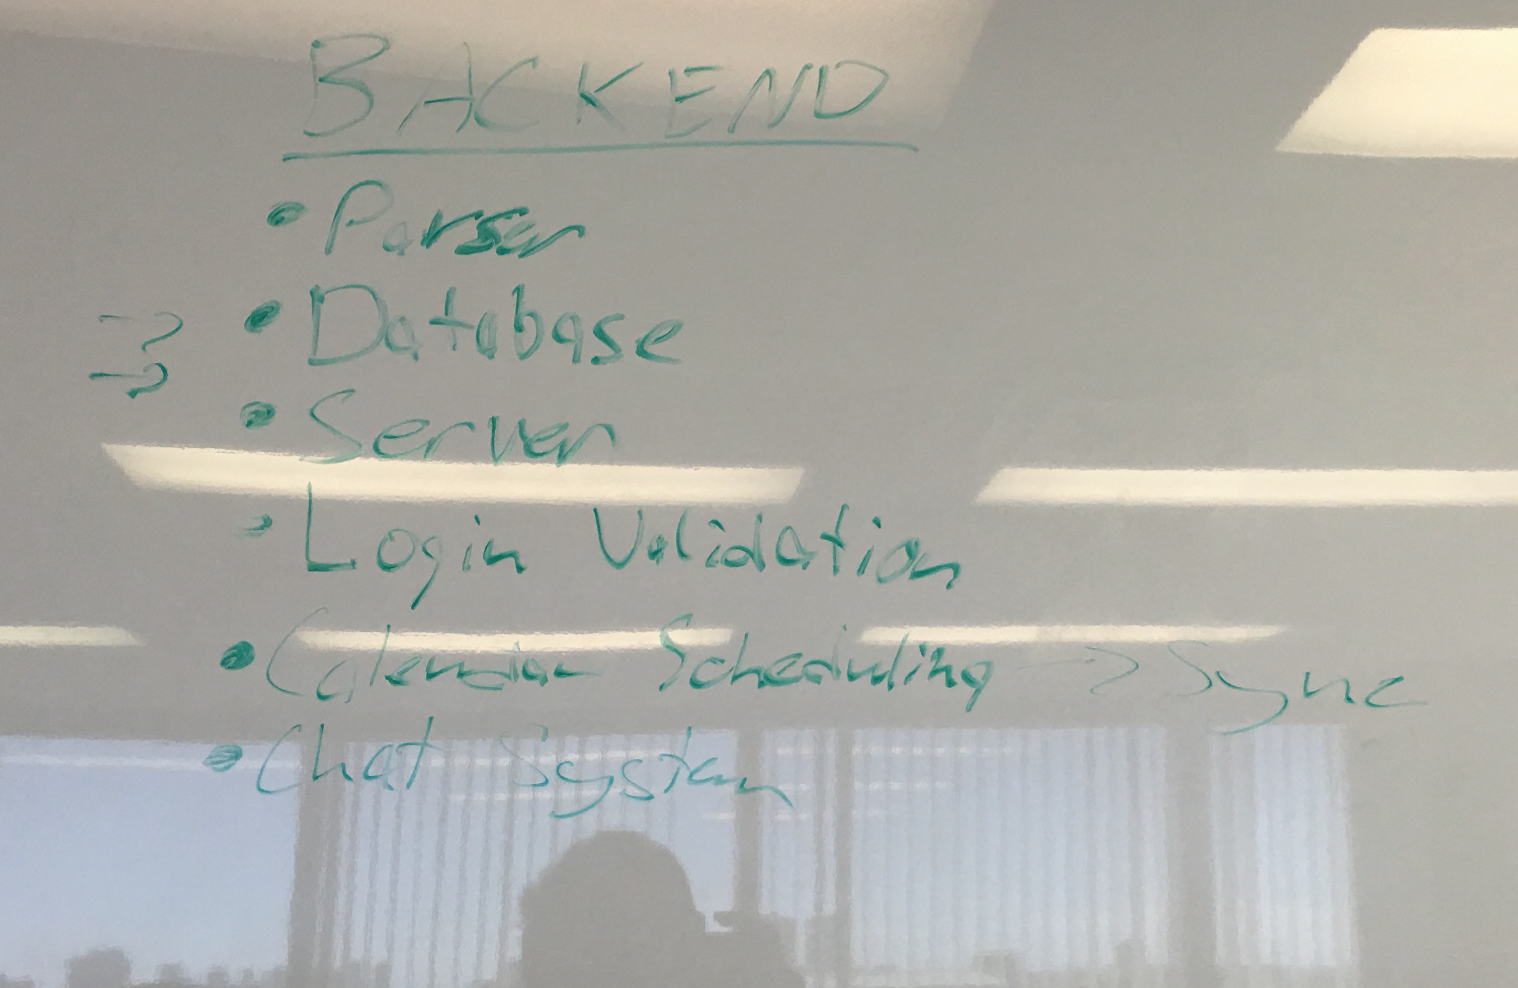 BACKEND
• Parser
→ • Database
→ • Server
• Login Validation
• Calendar Scheduling → Sync
• Chat System